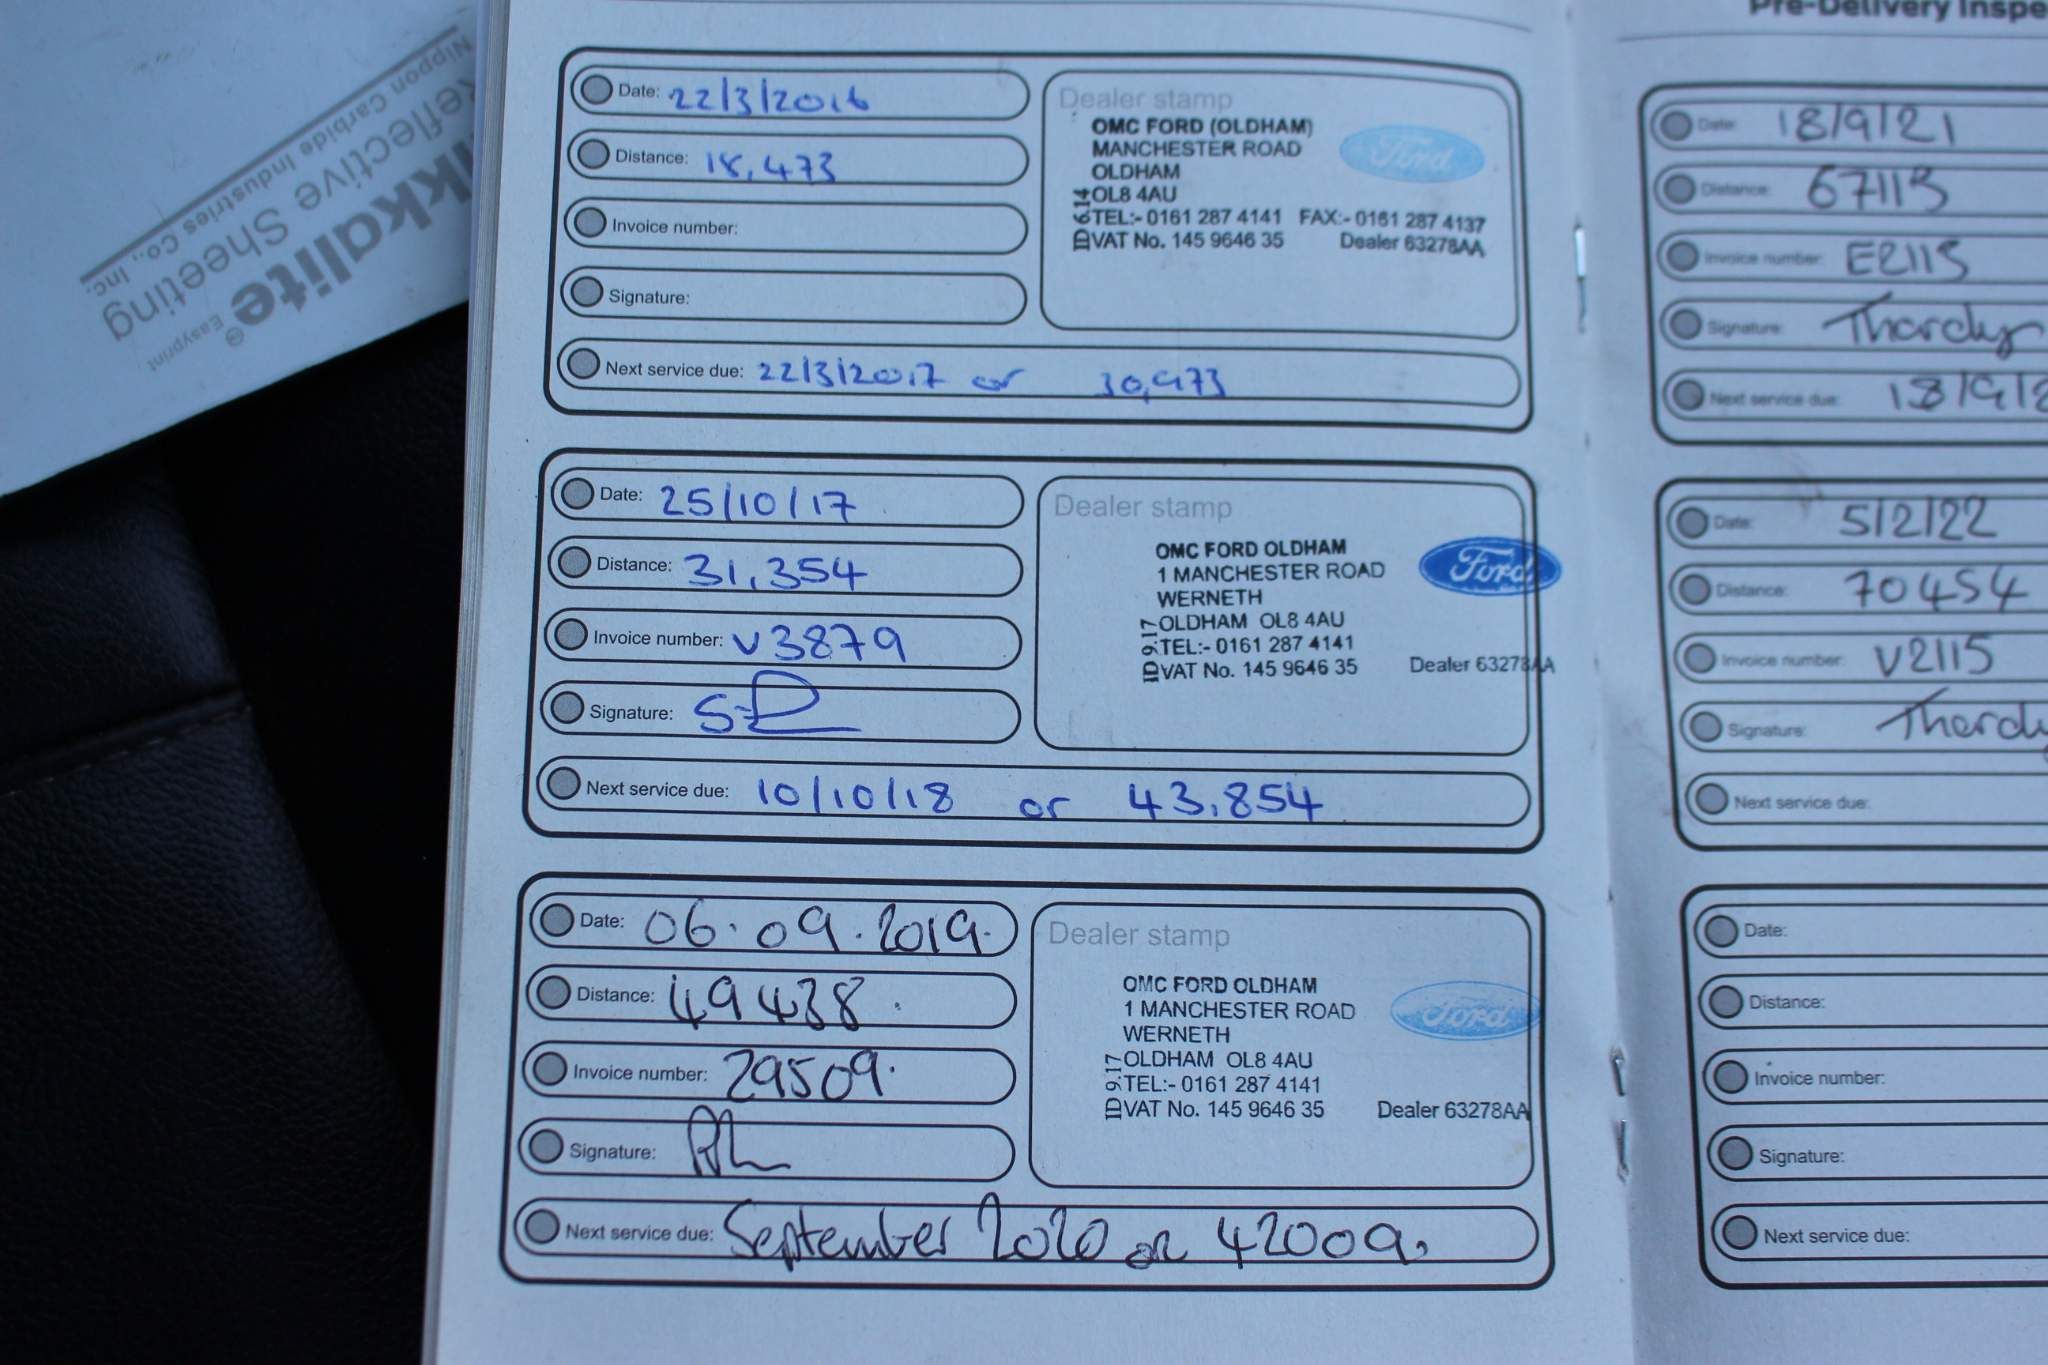 Nikkalite®
Easyprint
Reflective Sheeting
Nippon Carbide Industries Co., Inc.
Date: 22/3/2016
Distance: 18,473
Invoice number:
Signature:
Next service due: 22/3/2017 or 30,973
Dealer stamp
OMC FORD (OLDHAM)
MANCHESTER ROAD
OLDHAM
OL8 4AU
TEL:- 0161 287 4141 FAX:- 0161 287 4137
VAT No. 145 9646 35 Dealer 63278AA
ID 6.14
Ford
Date: 25/10/17
Distance: 31,354
Invoice number: V3879
Signature:
Next service due: 10/10/18 or 43,854
Dealer stamp
OMC FORD OLDHAM
1 MANCHESTER ROAD
WERNETH
OLDHAM OL8 4AU
TEL:- 0161 287 4141
VAT No. 145 9646 35 Dealer 63278AA
ID 9.17
Ford
Date: 06.09.2019.
Distance: 49438.
Invoice number: 29509.
Signature:
Next service due: September 2020 or 42009.
Dealer stamp
OMC FORD OLDHAM
1 MANCHESTER ROAD
WERNETH
OLDHAM OL8 4AU
TEL:- 0161 287 4141
VAT No. 145 9646 35 Dealer 63278AA
ID 9.17
Ford
Pre-Delivery Inspe
Date: 18/9/21
Distance: 67113
Invoice number: E2115
Signature: Thardy
Next service due: 18/9/2
Date: 5/2/22
Distance: 70454
Invoice number: V2115
Signature: Thardy
Next service due:
Date:
Distance:
Invoice number:
Signature:
Next service due: